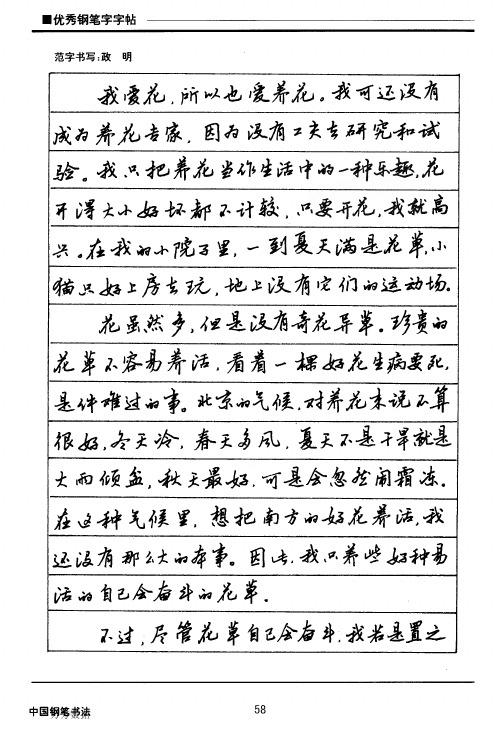 ■优秀钢笔字字帖
范字书写:政 明
我爱花，所以也爱养花。我可还没有
成为养花专家，因为没有工夫去研究和试
验。我只把养花当作生活中的一种乐趣，花
开得大小好坏都不计较，只要开花，我就高
兴。在我的小院子里，一到夏天满是花草，小
猫只好上房去玩，地上没有它们的运动场。
花虽然多，但是没有奇花异草。珍贵的
花草不容易养活，看着一棵好花生病要死，
是件难过的事。北京的气候，对养花来说不算
很好，冬天冷，春天多风，夏天不是干旱就是
大雨倾盆，秋天最好，可是会忽然闹霜冻。
在这种气候里，想把南方的好花养活，我
还没有那么大的本事。因此，我只养些好种易
活的自己会奋斗的花草。
不过，尽管花草自己会奋斗，我若是置之
中国钢笔书法
58